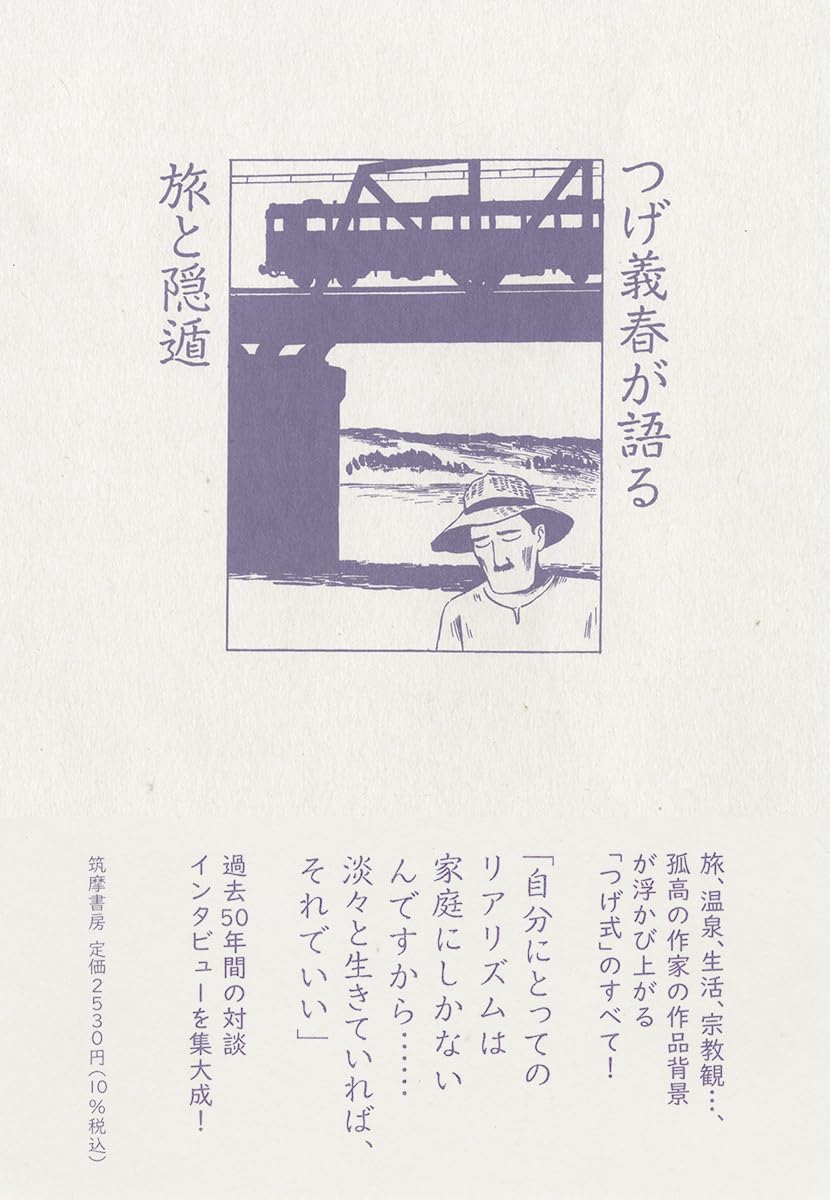 つげ義春が語る
旅と隠遁
旅、温泉、生活、宗教観…、
孤高の作家の作品背景
が浮かび上がる
「つげ式」のすべて！
「自分にとっての
リアリズムは
家庭にしかない
んですから……
淡々と生きていれば、
それでいい」
過去50年間の対談
インタビューを集大成！
筑摩書房 定価2530円(10%税込)